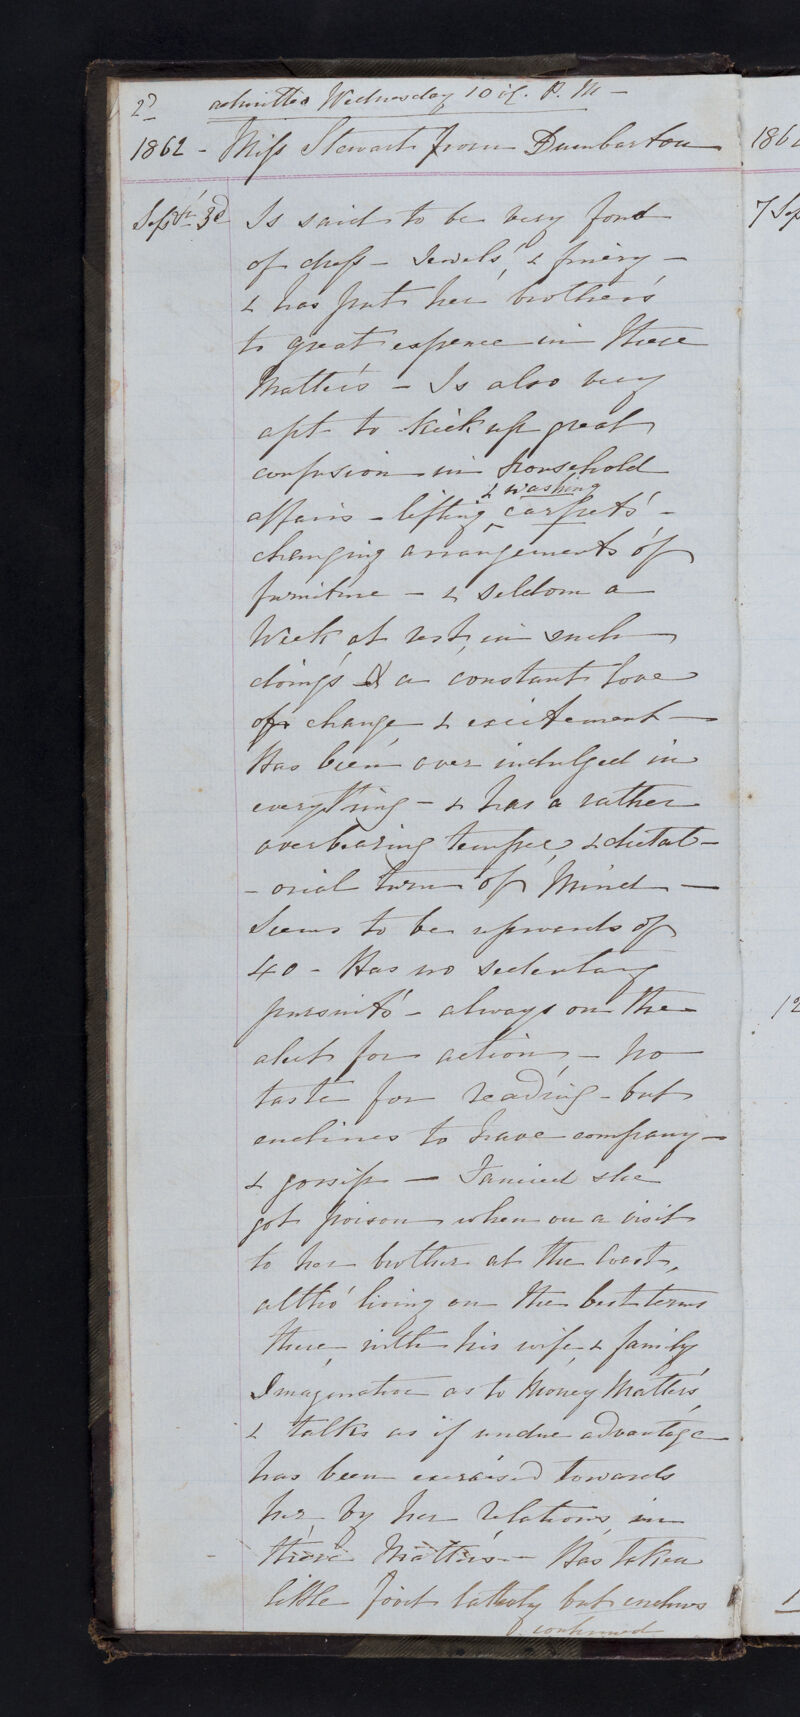 2d admitted Wednesday 10 P.M -
1862 - Miss Stewart from Dumbarton
Septr 3d Is said to be very fond
of dress - Jewels, & finery -
& has put her brothers
to great expence in these
Matters - Is also very
apt to kick up great
confusion in household
& washing
affairs - lifting ‸ carpets -
changing arrangements of
furniture - & seldom a
Week at rest, in such
doings & a constant love
of change & excitement -
Has been over indulged in
everything - & has a rather
overbearing temper, & dictat-
-orial turn of Mind -
Seems to be upwards of
40 - Has no sedentary
pursuits - always on the
alert for action, - No
taste for reading - but
enclines to have company -
& gossip - Fancied she
got poison when on a visit
to her brother at the Coast,
altho' living on the best terms
there, with his wife & family
Imaginative as to Money Matters,
& talks as if undue advantage
has been exercised towards
her by her relations in
these Matters - Has taken
little food latterly but enclines
continued
186
7 Sep
12
1